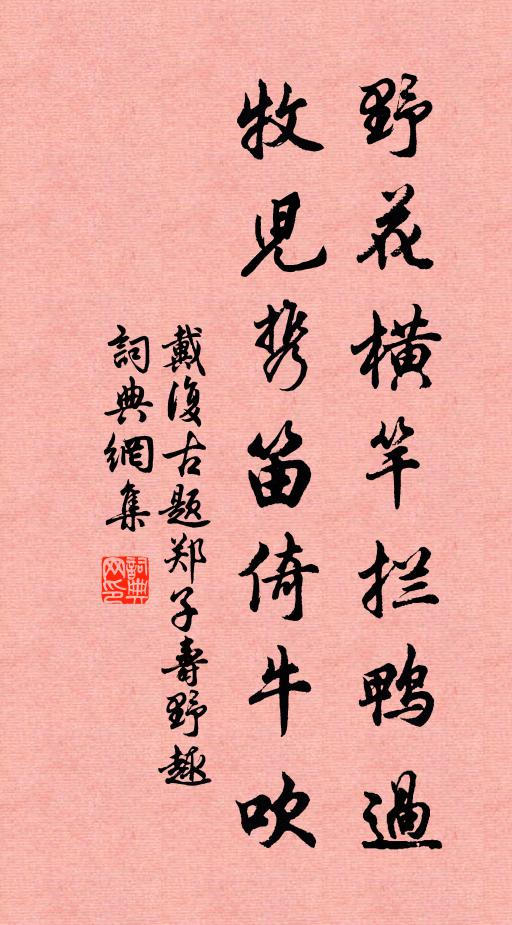 野花横竿拦鸭過
牧児携笛倚牛吹
戴復古题郑子壽野趣
詞典網集
詞典网印